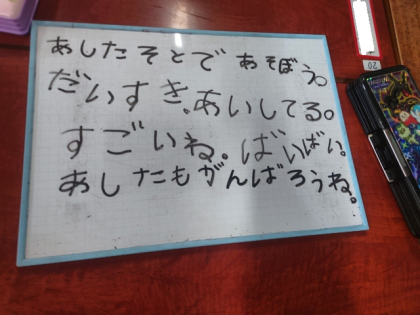 あしたそとで あそぼう。
だいすき。あいしてる。
すごいね。ばいばい。
あしたもがんばろうね。
20